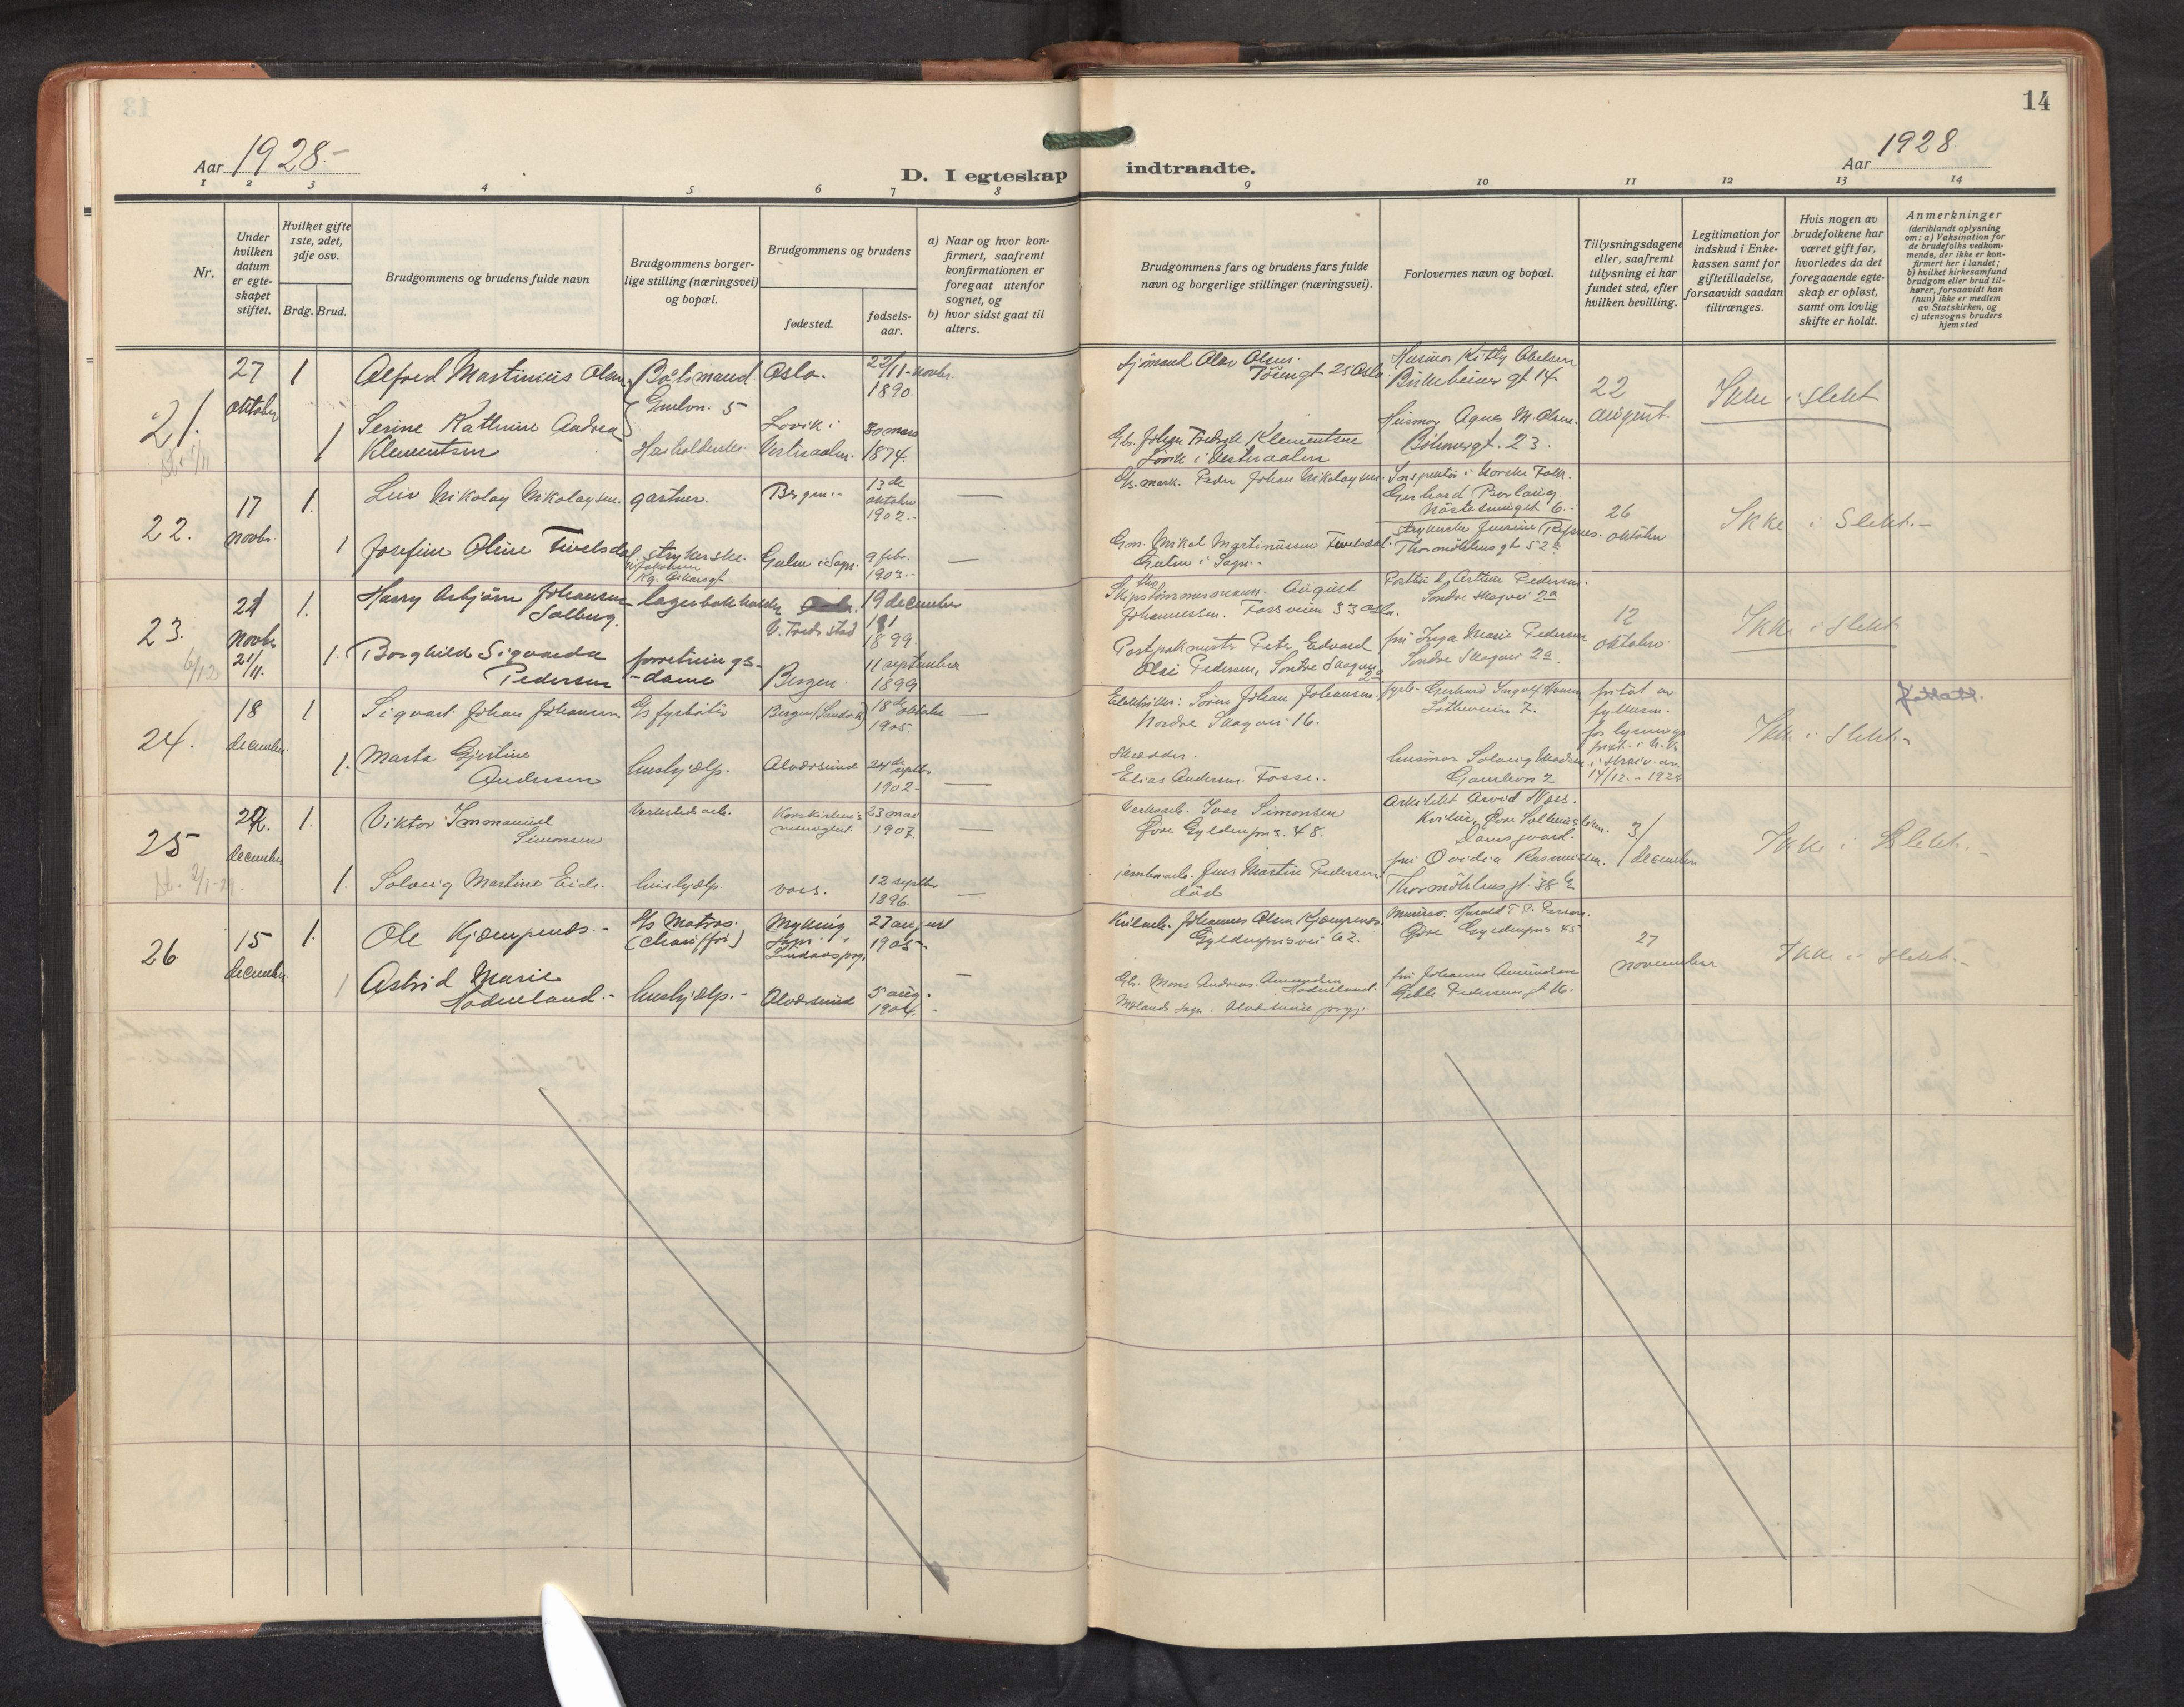 14
Aar 1928.-
D. I egteskap indtraadte.
Aar 1928.
1 2 3 4 5 6 7 8 9 10 11 12 13 14
Nr.
Under hvilken datum er egte-skapet stiftet.
Hvilket gifte 1ste, 2det, 3dje osv.
Brdg. Brud.
Brudgommens og brudens fulde navn
Brudgommens borger-lige stilling (næringsvei) og bopæl.
Brudgommens og brudens
fødested.
fødsels-aar.
a) Naar og hvor kon-firmert, saafremt konfirmationen er foregaat utenfor sognet, og
b) hvor sidst gaat til alters.
Brudgommens fars og brudens fars fulde navn og borgerlige stillinger (næringsvei).
Forlovernes navn og bopæl.
Tillysningsdagene eller, saafremt tillysning ei har fundet sted, efter hvilken bevilling.
Legitimation for indskud i Enke-kassen samt for giftetilladelse, forsaavidt saadan tiltrænges.
Hvis nogen av brudefolkene har været gift før, hvorledes da det foregaaende egte-skap er opløst, samt om lovlig skifte er holdt.
Anmerkninger (deriblandt oplysning om: a) Vaksination for de brudefolks vedkom-mende, der ikke er kon-firmert her i landet; b) hvilket kirkesamfund brudgom eller brud til-hører, forsaavidt han (hun) ikke er medlem av Statskirken, og c) utensogns bruders hjemsted
21.
27 oktober
1
Alfred Martinius Olsen
Baatsmand.
Oslo.
22/11 - novbr. 1890.
Sjömand Olav Olsen.
Töiengt 25 Oslo.
Husmor Kitty Abelsen
Birkebeiner gt 14
22 august.
Ikke i slekt
1
Serine Kathrine Andrea Klementsen
Husholderske.
Lovik i Vesteraalen.
30 mars 1874.
Gbr. Johan Fredrik Klementsen
Lövik i Vesteraalen
Husmor Agnes M. Olsen.
Böhmergt. 23.
22.
17 novbr.
1.
Leiv Nikolay Nikolaysen.
gartner.
Bergen..
13de oktober 1902.-
Peder Johan Nikolaysen.
Inspektör i Norske Folk.
Gerhard Borlaug
Nöstesmuget 6.
26 oktober
Ikke i Slekt.-
1
Josefine Oline Tveitsdal.
strykerske.
Gulen i Sogn.
9 feb. 1903.-
Gm. Mikal Martinussen
Gulen i Sogn.-
Thormöhlens gt 52a
23.
21 novbr 21/11.
6/12
1.
Harry Asbjörn Johansen Solberg.
lagerbokholder
V. Fredrstad
19 december 1899.
Skipstömmermann. August
Johannessen. Fossveien 33 Oslo.
Arthur Pedersen.
Söndre Skogvei 2a
12 oktober.
Ikke i slekt
1.
Borghild Sigvarda Pedersen
forretnings-dame
Bergen.
11 september 1899
Postpakmester Peter Edvard
Olai Pedersen, Söndre Skogvei 2a
fru Inga Marie Pedersen
Söndre Skogvei 2a.
24.
18 december.
1
Sigvart Johan Johansen
G/s fyrböter
18de oktober 1905.
Elektriker: Sören Johan Johansen.
Nordre Skogvei 16.
Gerhard Ingolf
7.
fritat av fylkesm.
for lysning
14/12.- 1928
Ikke i slekt.-
1.
Marta Gjertine Andersen
hushjælp.
Alversund
24de septbr 1902.-
Skrædder.
Elias Andersen Fosse..
husmor Solveig
2
25
december
1.
Viktor Immanuel Simonsen
Verkstedarb.
Korskirkens menighet.
23 mai 1907.
Ivar Simonsen
Övre Gyldenpris. 48.
Arkitekt Arvid Næs.
3/ 1 december
Ikke i Slekt.-
1.
Solveig Martine Eide.
hushjælp.
voss.
12 septbr 1896.
Jens Martin Pedersen
död
fru Ovidia Rasmussen.
Thormöhlens gt. 38
26
15 december.
1.
Ole Kjæmpenes.-
G/s Matros. (Chauffør)
Myking sogn. Lindaas prg.
27 august 1905-
Johannes Olsen Kjæmpenes.
Gyldenprisvei 62.
Övre Gyldenpris 45
27 november
Ikke i slekt.-
1
Astrid Marie Hödneland.-
hushjælp.-
Alversund
5 aug. 1904.
Gbr. Mons Andreas Amundsen Hödneland.
Alversund prgj.
fru Johanne Amundsen
Geble Pedersens gt 16.